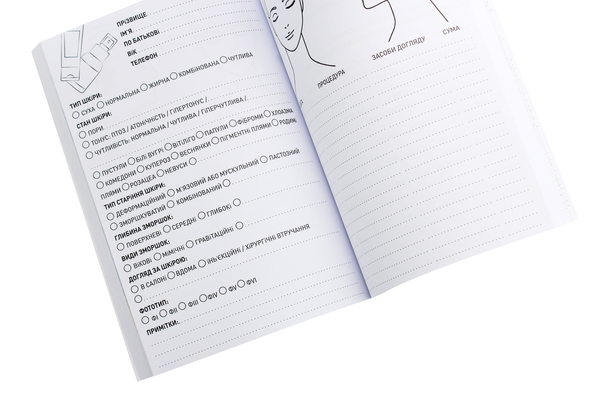 ПРІЗВИЩЕ
ІМ'Я
ПО БАТЬКОВІ
ВІК
ТЕЛЕФОН
ТИП ШКІРИ:
СУХА НОРМАЛЬНА ЖИРНА КОМБІНОВАНА ЧУТЛИВА
СТАН ШКІРИ:
ПОРИ
ТОНУС: ПТОЗ / АТОНІЧНІСТЬ / ГІПЕРТОНУС /
ЧУТЛИВІСТЬ: НОРМАЛЬНА / ЧУТЛИВА / ГІПЕРЧУТЛИВА /
ПУСТУЛИ БІЛІ ВУГРІ ВІТІЛІГО ПАПУЛИ ФІБРОМИ ХЛОАЗМА
КОМЕДОНИ КУПЕРОЗ ВЕСНЯНКИ ПІГМЕНТНІ ПЛЯМИ РОДИМІ
ПЛЯМИ РОЗАЦЕА НЕВУСИ
ТИП СТАРІННЯ ШКІРИ:
ДЕФОРМАЦІЙНИЙ М'ЯЗОВИЙ АБО МУСКУЛЬНИЙ ПАСТОЗНИЙ
ЗМОРШКУВАТИЙ КОМБІНОВАНИЙ
ГЛИБИНА ЗМОРШОК:
ПОВЕРХНЕВІ СЕРЕДНІ ГЛИБОКІ
ВИДИ ЗМОРШОК:
ВІКОВІ МІМІЧНІ ГРАВІТАЦІЙНІ
ДОГЛЯД ЗА ШКІРОЮ:
В САЛОНІ ВДОМА ІН'ЄКЦІЙНІ / ХІРУРГІЧНІ ВТРУЧАННЯ
ФОТОТИП:
ФІ ФІІ ФІІІ ФІV ФV ФVI
ПРИМІТКИ:
ПРОЦЕДУРА ЗАСОБИ ДОГЛЯДУ СУМА